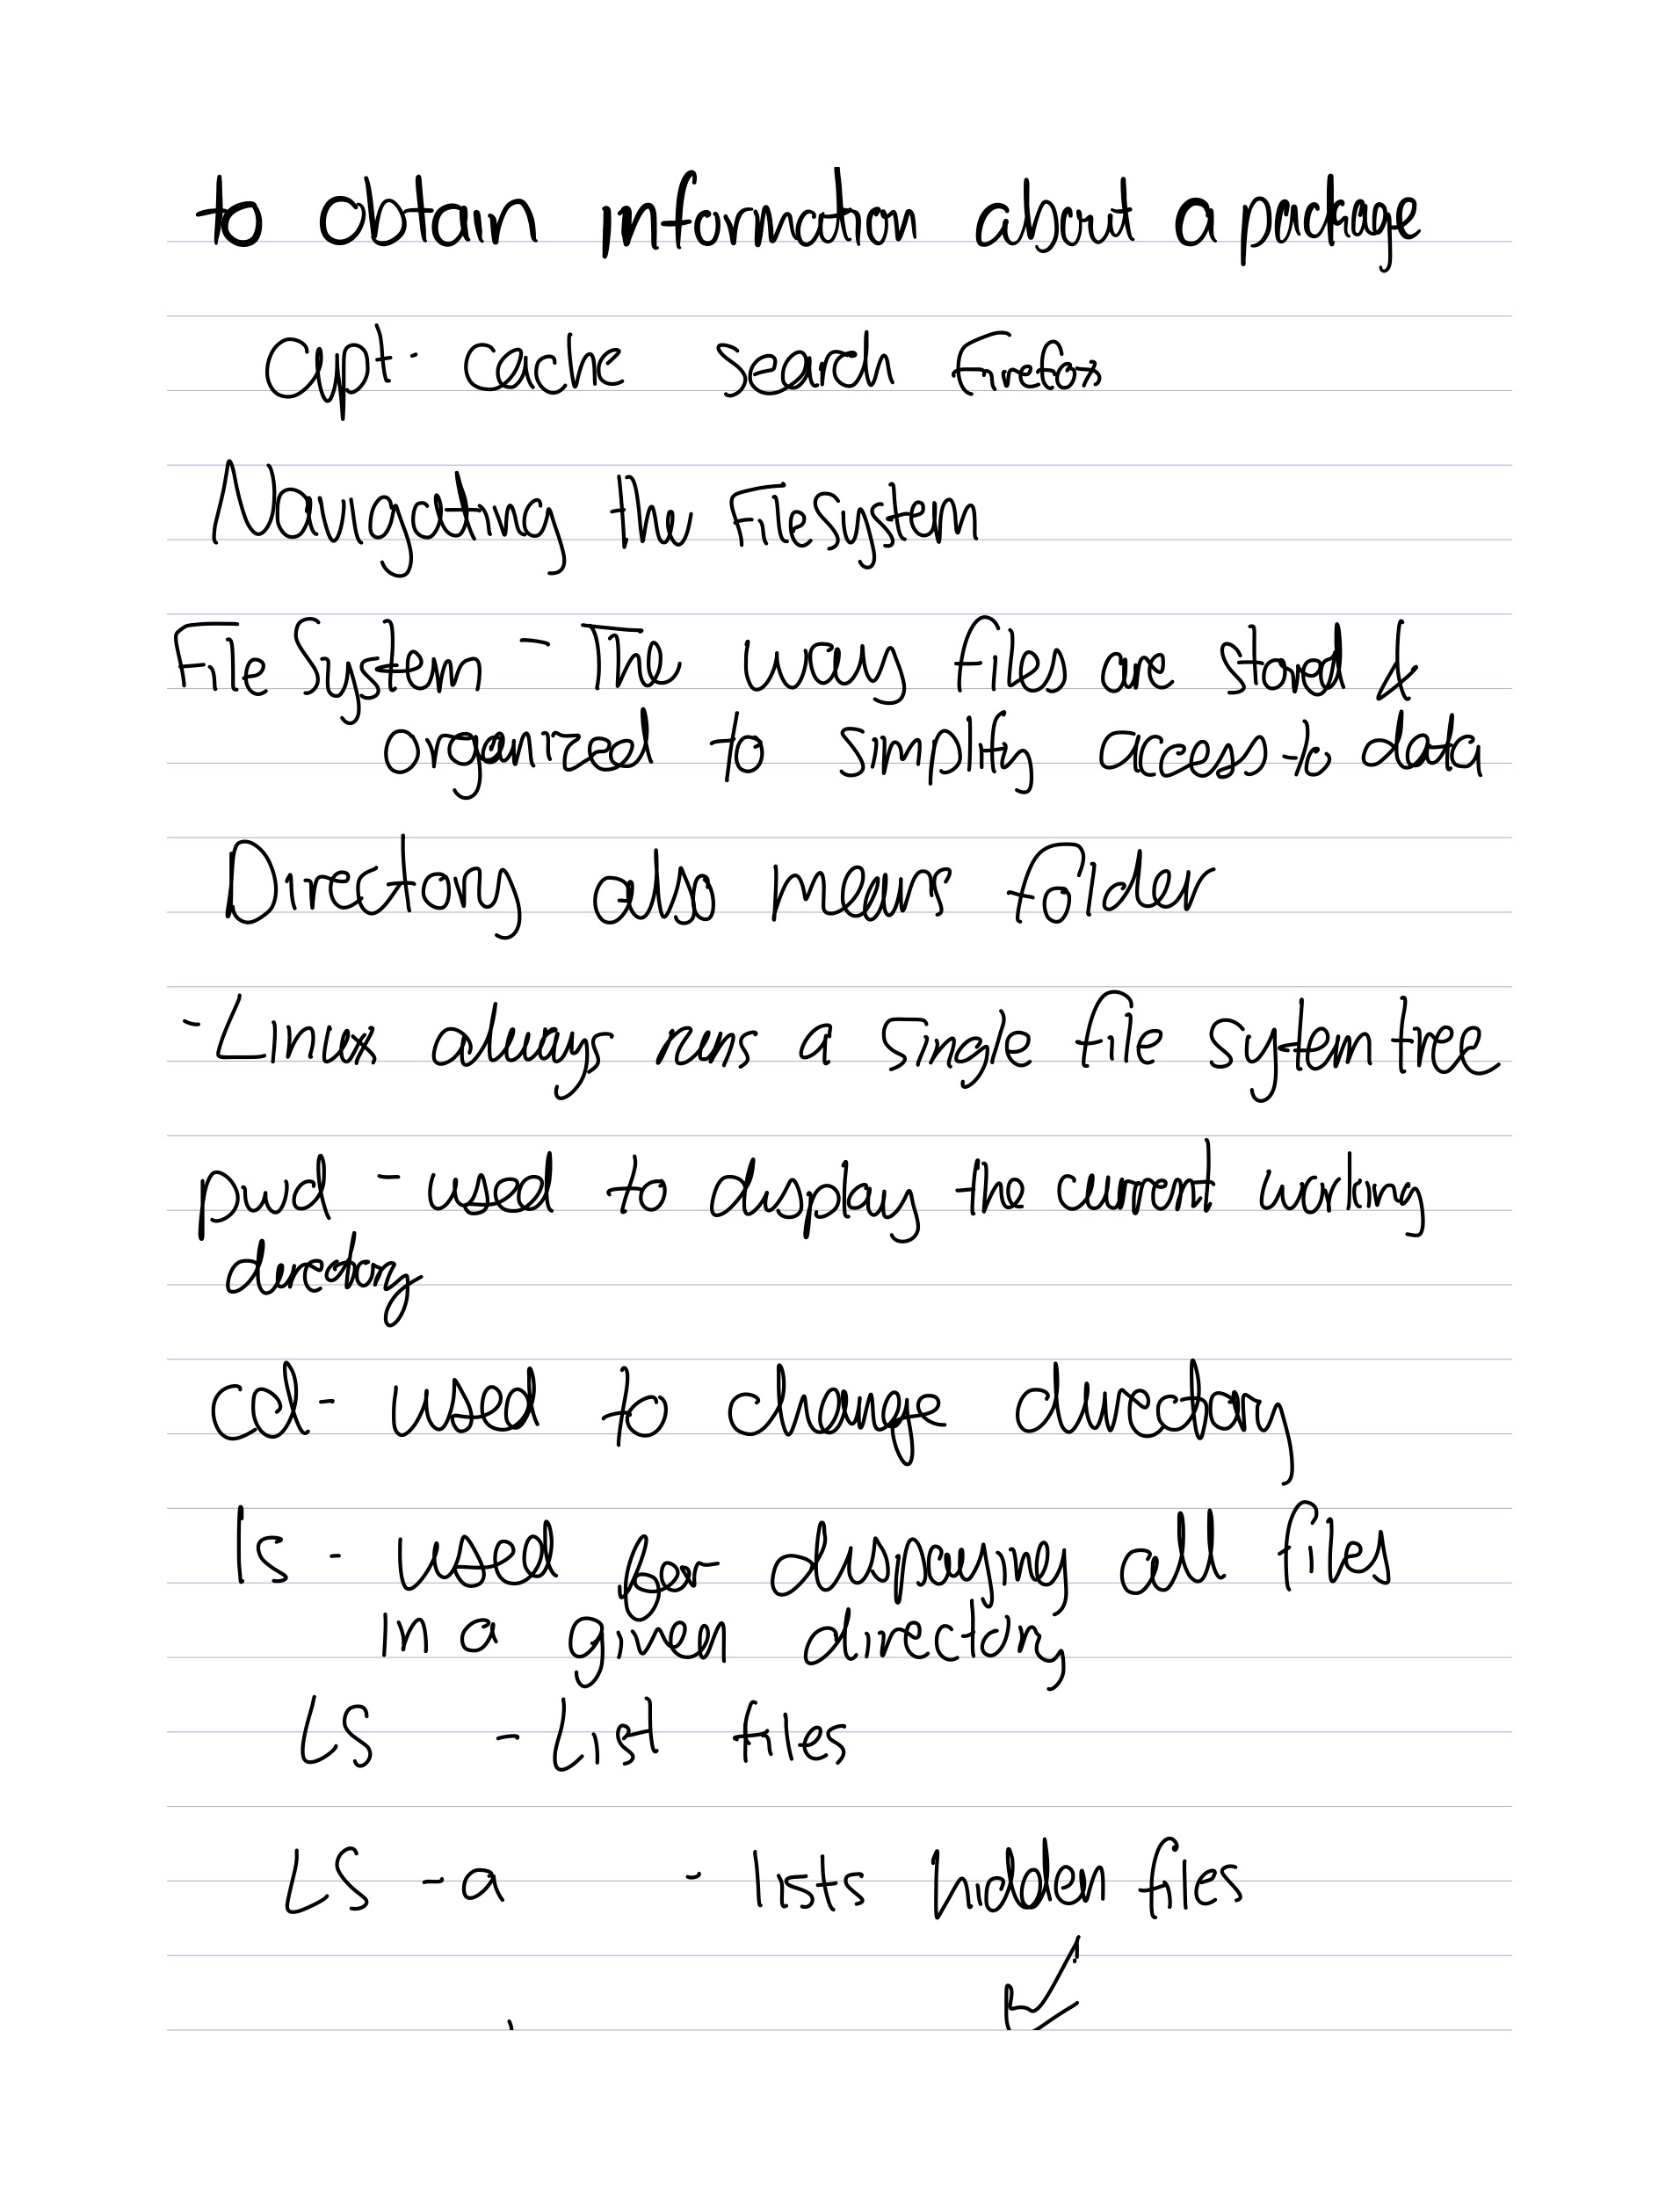 to obtain information about a package
apt-cache search Firefox
Navigating the Filesystem
File System - The way files are stored &
organized to simplify access to data
Directory also means folder
-Linux always has a single file system tree
pwd - used to display the current working
directory
cd - used to change directory
ls - used for displaying all files
in a given directory
LS - List files
LS -a - lists hidden files